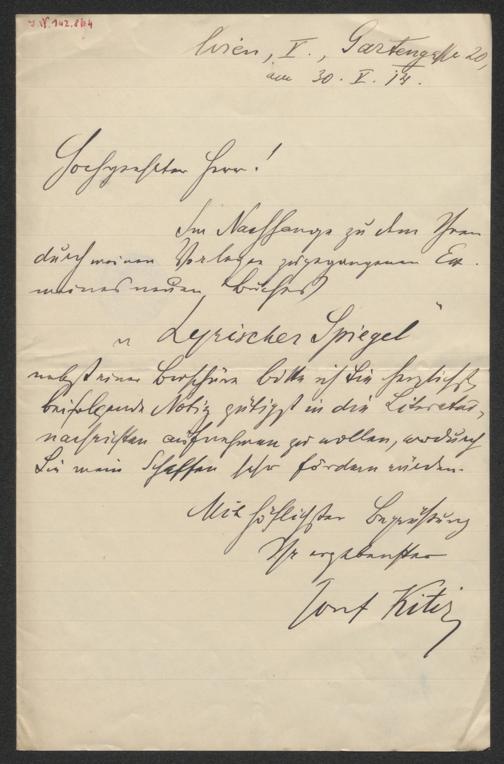 Wien, V., Gartengasse 20,
am 30. V. 14.
Hochgeehrter Herr!
Im Nachhange zu dem Ihnen
durch meinen Verleger zugegangenen Ex.
meines neuen Buches
„Lyrischer Spiegel"
nebst einer Broschüre bitte ich Sie herzlichst,
beifolgende Notiz gütigst in die Literatur-
nachrichten aufnehmen zu wollen, wodurch
Sie mein Schaffen sehr fördern würden.
Mit höflichster Begrüßung
Ihr ergebenster
Josef Kitir